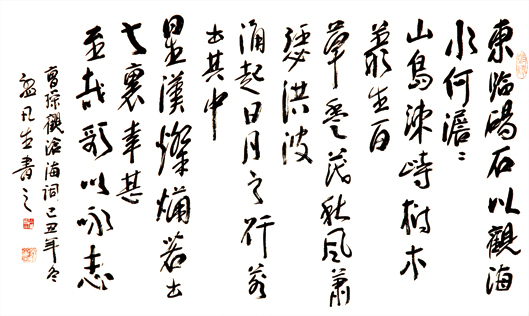 東臨碣石以觀海
水何澹々
山島竦峙樹木
叢生百
草豐茂秋風蕭
瑟洪波
涌起日月之行若
出其中
星漢燦爛若出
其裏幸甚
至哉歌以咏志
曹操觀滄海詞己丑年冬
凡生書之